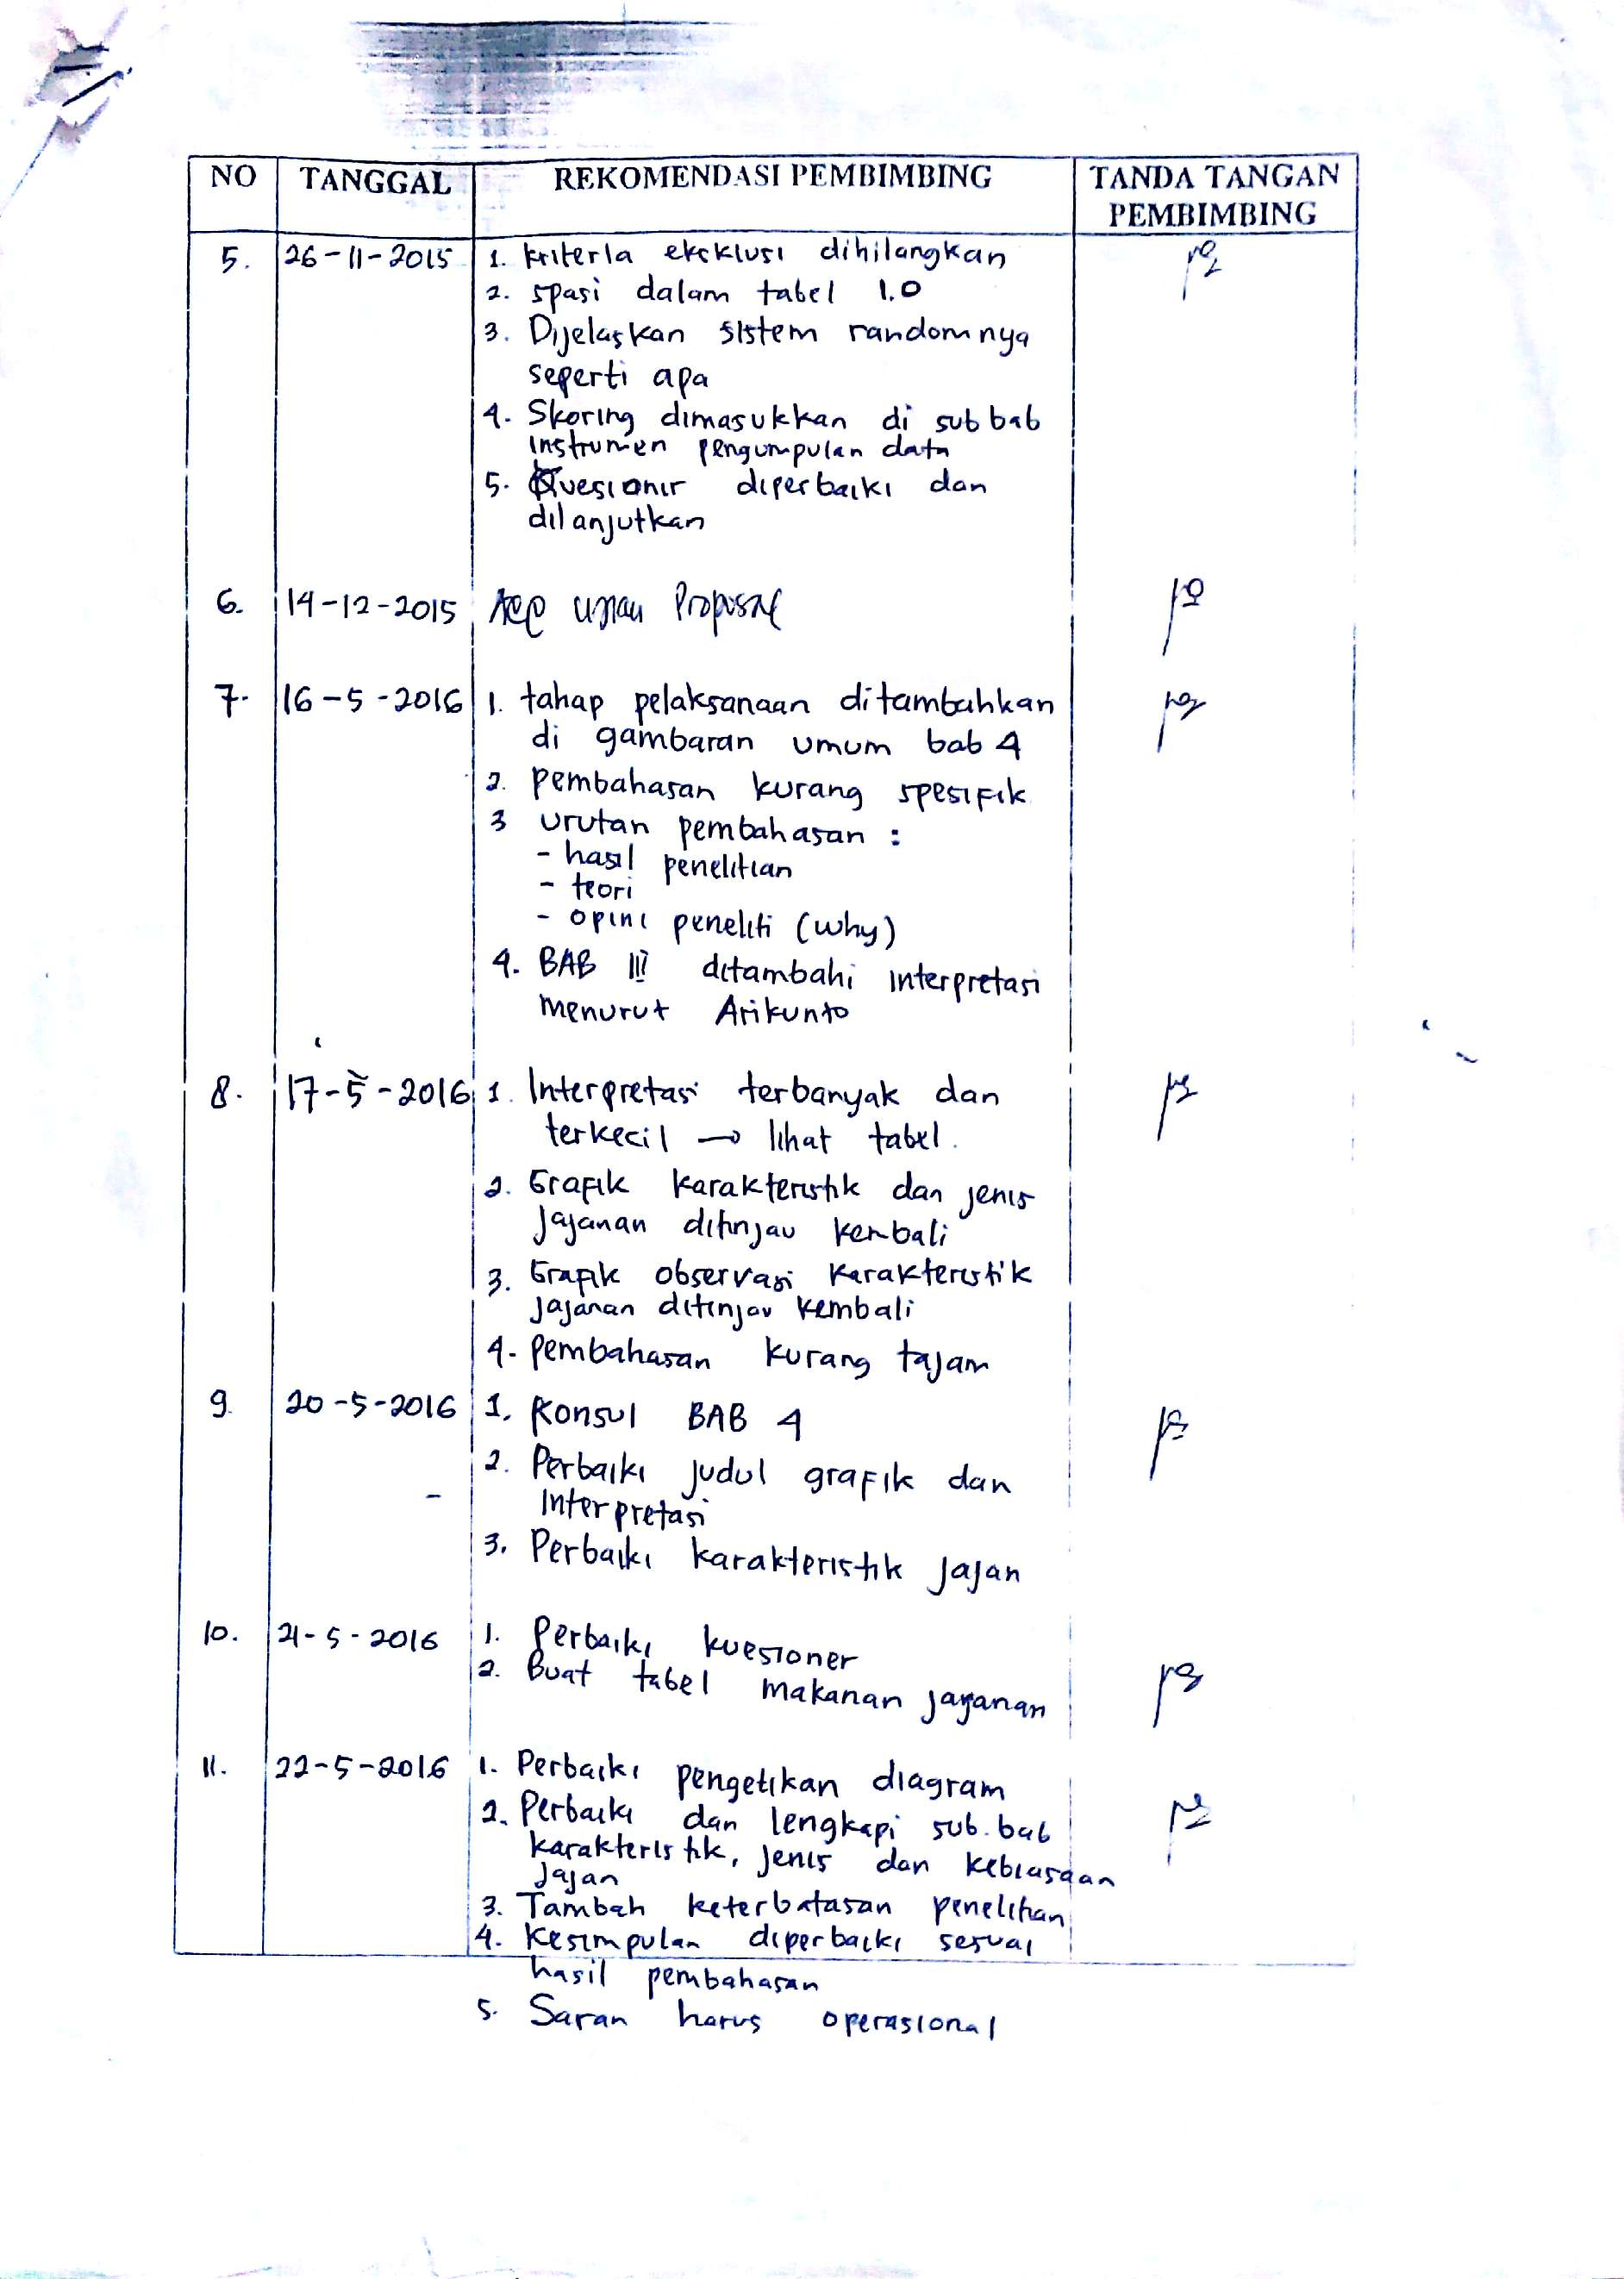 NO TANGGAL REKOMENDASI PEMBIMBING TANDA TANGAN
PEMBIMBING
5. 26-11-2015 1. kriteria eksklusi dihilangkan
2. spasi dalam tabel 1.0
3. Dijelaskan sistem randomnya
seperti apa
4. Skoring dimasukkan di sub bab
instrumen pengumpulan data
5. Kuesionir diperbaiki dan
dilanjutkan
6. 14-12-2015 Acc ujian Proposal
7. 16-5-2016 1. tahap pelaksanaan ditambahkan
di gambaran umum bab 4
2. pembahasan kurang spesifik
3 urutan pembahasan :
- hasil penelitian
- teori
- opini peneliti (why)
4. BAB III ditambahi interpretasi
menurut Arikunto
8. 17-5-2016 1. Interpretasi terbanyak dan
terkecil → lihat tabel.
2. Grafik karakteristik dan jenis
jajanan ditinjau kembali
3. Grafik observasi karakteristik
jajanan ditinjau kembali
4. pembahasan kurang tajam
9. 20-5-2016 1. Konsul BAB 4
2. Perbaiki judul grafik dan
interpretasi
3. Perbaiki karakteristik jajan
10. 21-5-2016 1. Perbaiki kuesioner
2. Buat tabel makanan jajanan
11. 22-5-2016 1. Perbaiki pengetikan diagram
2. Perbaiki dan lengkapi sub.bab
karakteristik, jenis dan kebiasaan
jajan
3. Tambah keterbatasan penelitian
4. Kesimpulan diperbaiki sesuai
hasil pembahasan
5. Saran harus operasional